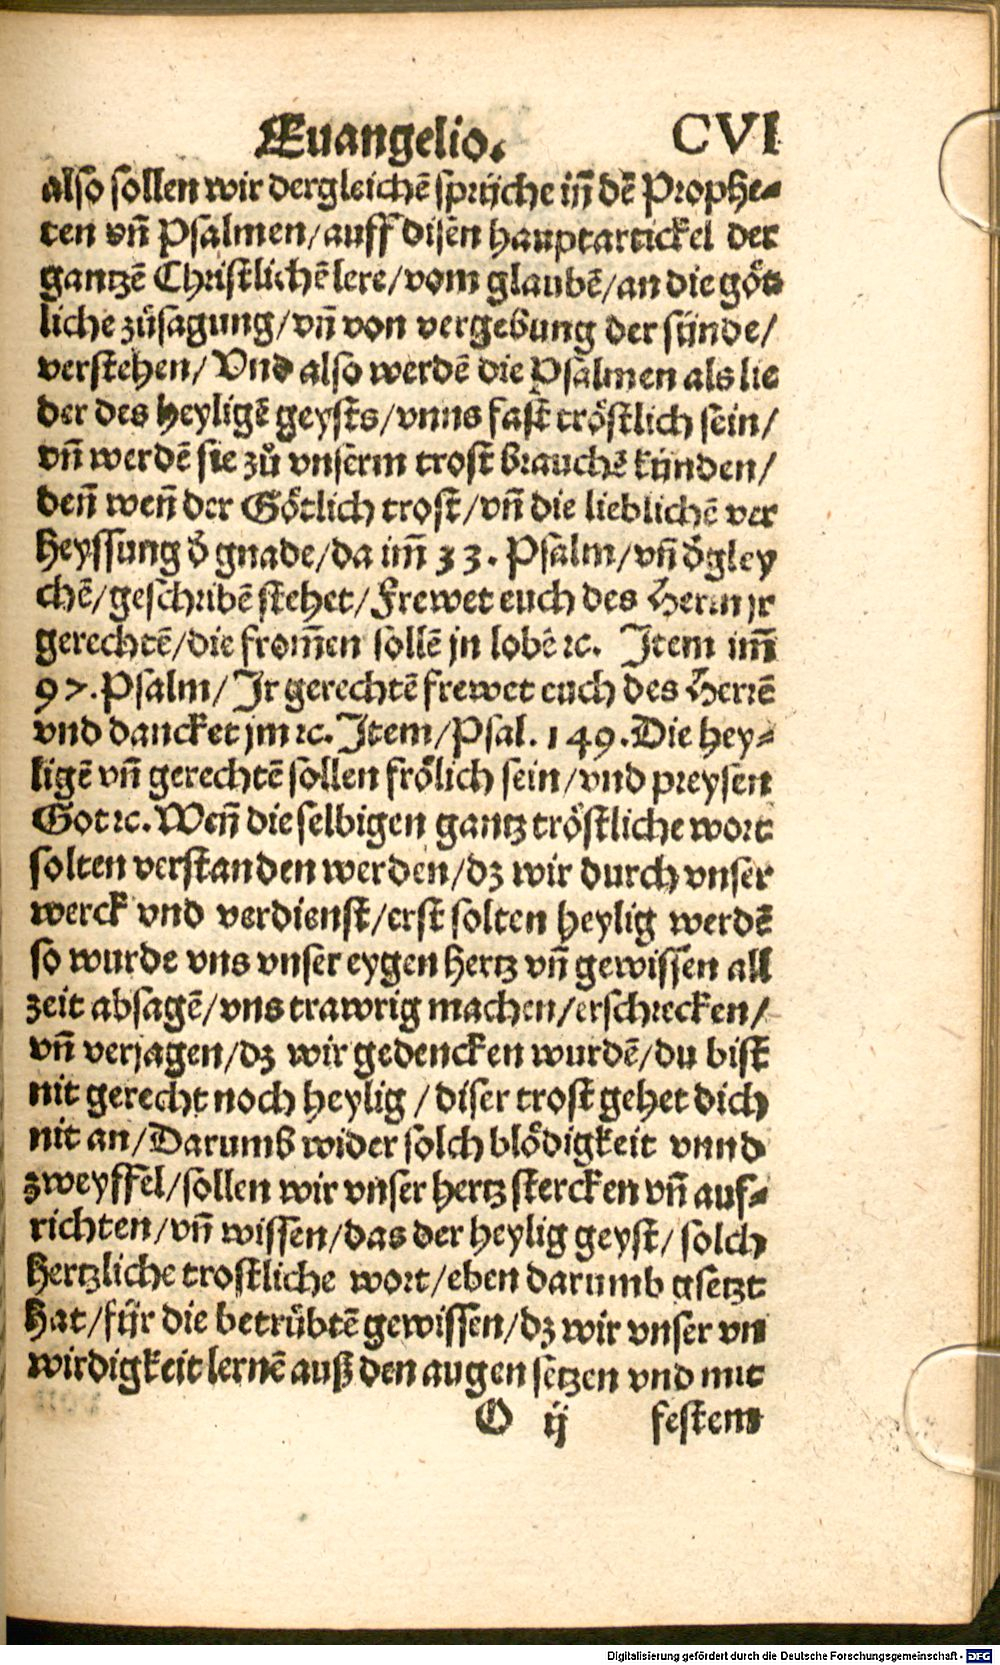 Euangelio. CVI
also sollen wir dergleichẽ sprüche iñ dẽ Prophe-
ten vñ Psalmen/auff disen hauptartickel der
gantzẽ Christlichẽ lere/vom glaubẽ/an die göt
liche zůsagung/vñ von vergebung der sünde/
verstehen/Vnd also werdẽ die Psalmen als lie
der des heyligẽ geysts/vnns fast tröstlich sein/
vñ werdẽ sie zů vnserm trost brauchẽ künden/
deñ weñ der Götlich trost/vñ die lieblichẽ ver
heyssung d̕ gnade/da im̃ 33. Psalm/vñ d̕gley
chẽ/geschribẽ stehet/Frewet euch des Herrn jr
gerechtẽ/die from̃en sollẽ jn lobẽ ꝛc. Item im̃
97. Psalm/Jr gerechtẽ frewet euch des Herrẽ
vnd dancket jm ꝛc. Item/Psal. 149. Die hey-
ligẽ vñ gerechtẽ sollen frölich sein/vnd preysen
Got ꝛc. Weñ die selbigen gantz tröstliche wort
solten verstanden werden/dz wir durch vnser
werck vnd verdienst/erst solten heylig werdẽ
so wurde vns vnser eygen hertz vñ gewissen all
zeit absagẽ/vns trawrig machen/erschrecken/
vñ verjagen/dz wir gedencken wurdẽ/du bist
nit gerecht noch heylig/diser trost gehet dich
nit an/Darumb wider solch blödigkeit vnnd
zweyffel/sollen wir vnser hertz stercken vñ auf-
richten/vñ wissen/das der heylig geyst/solch
hertzliche trostliche wort/eben darumb gsetzt
hat/für die betrübtẽ gewissen/dz wir vnser vn
wirdigkeit lernẽ auß den augen setzen vnd mit
O ij festem
Digitalisierung gefördert durch die Deutsche Forschungsgemeinschaft - DFG